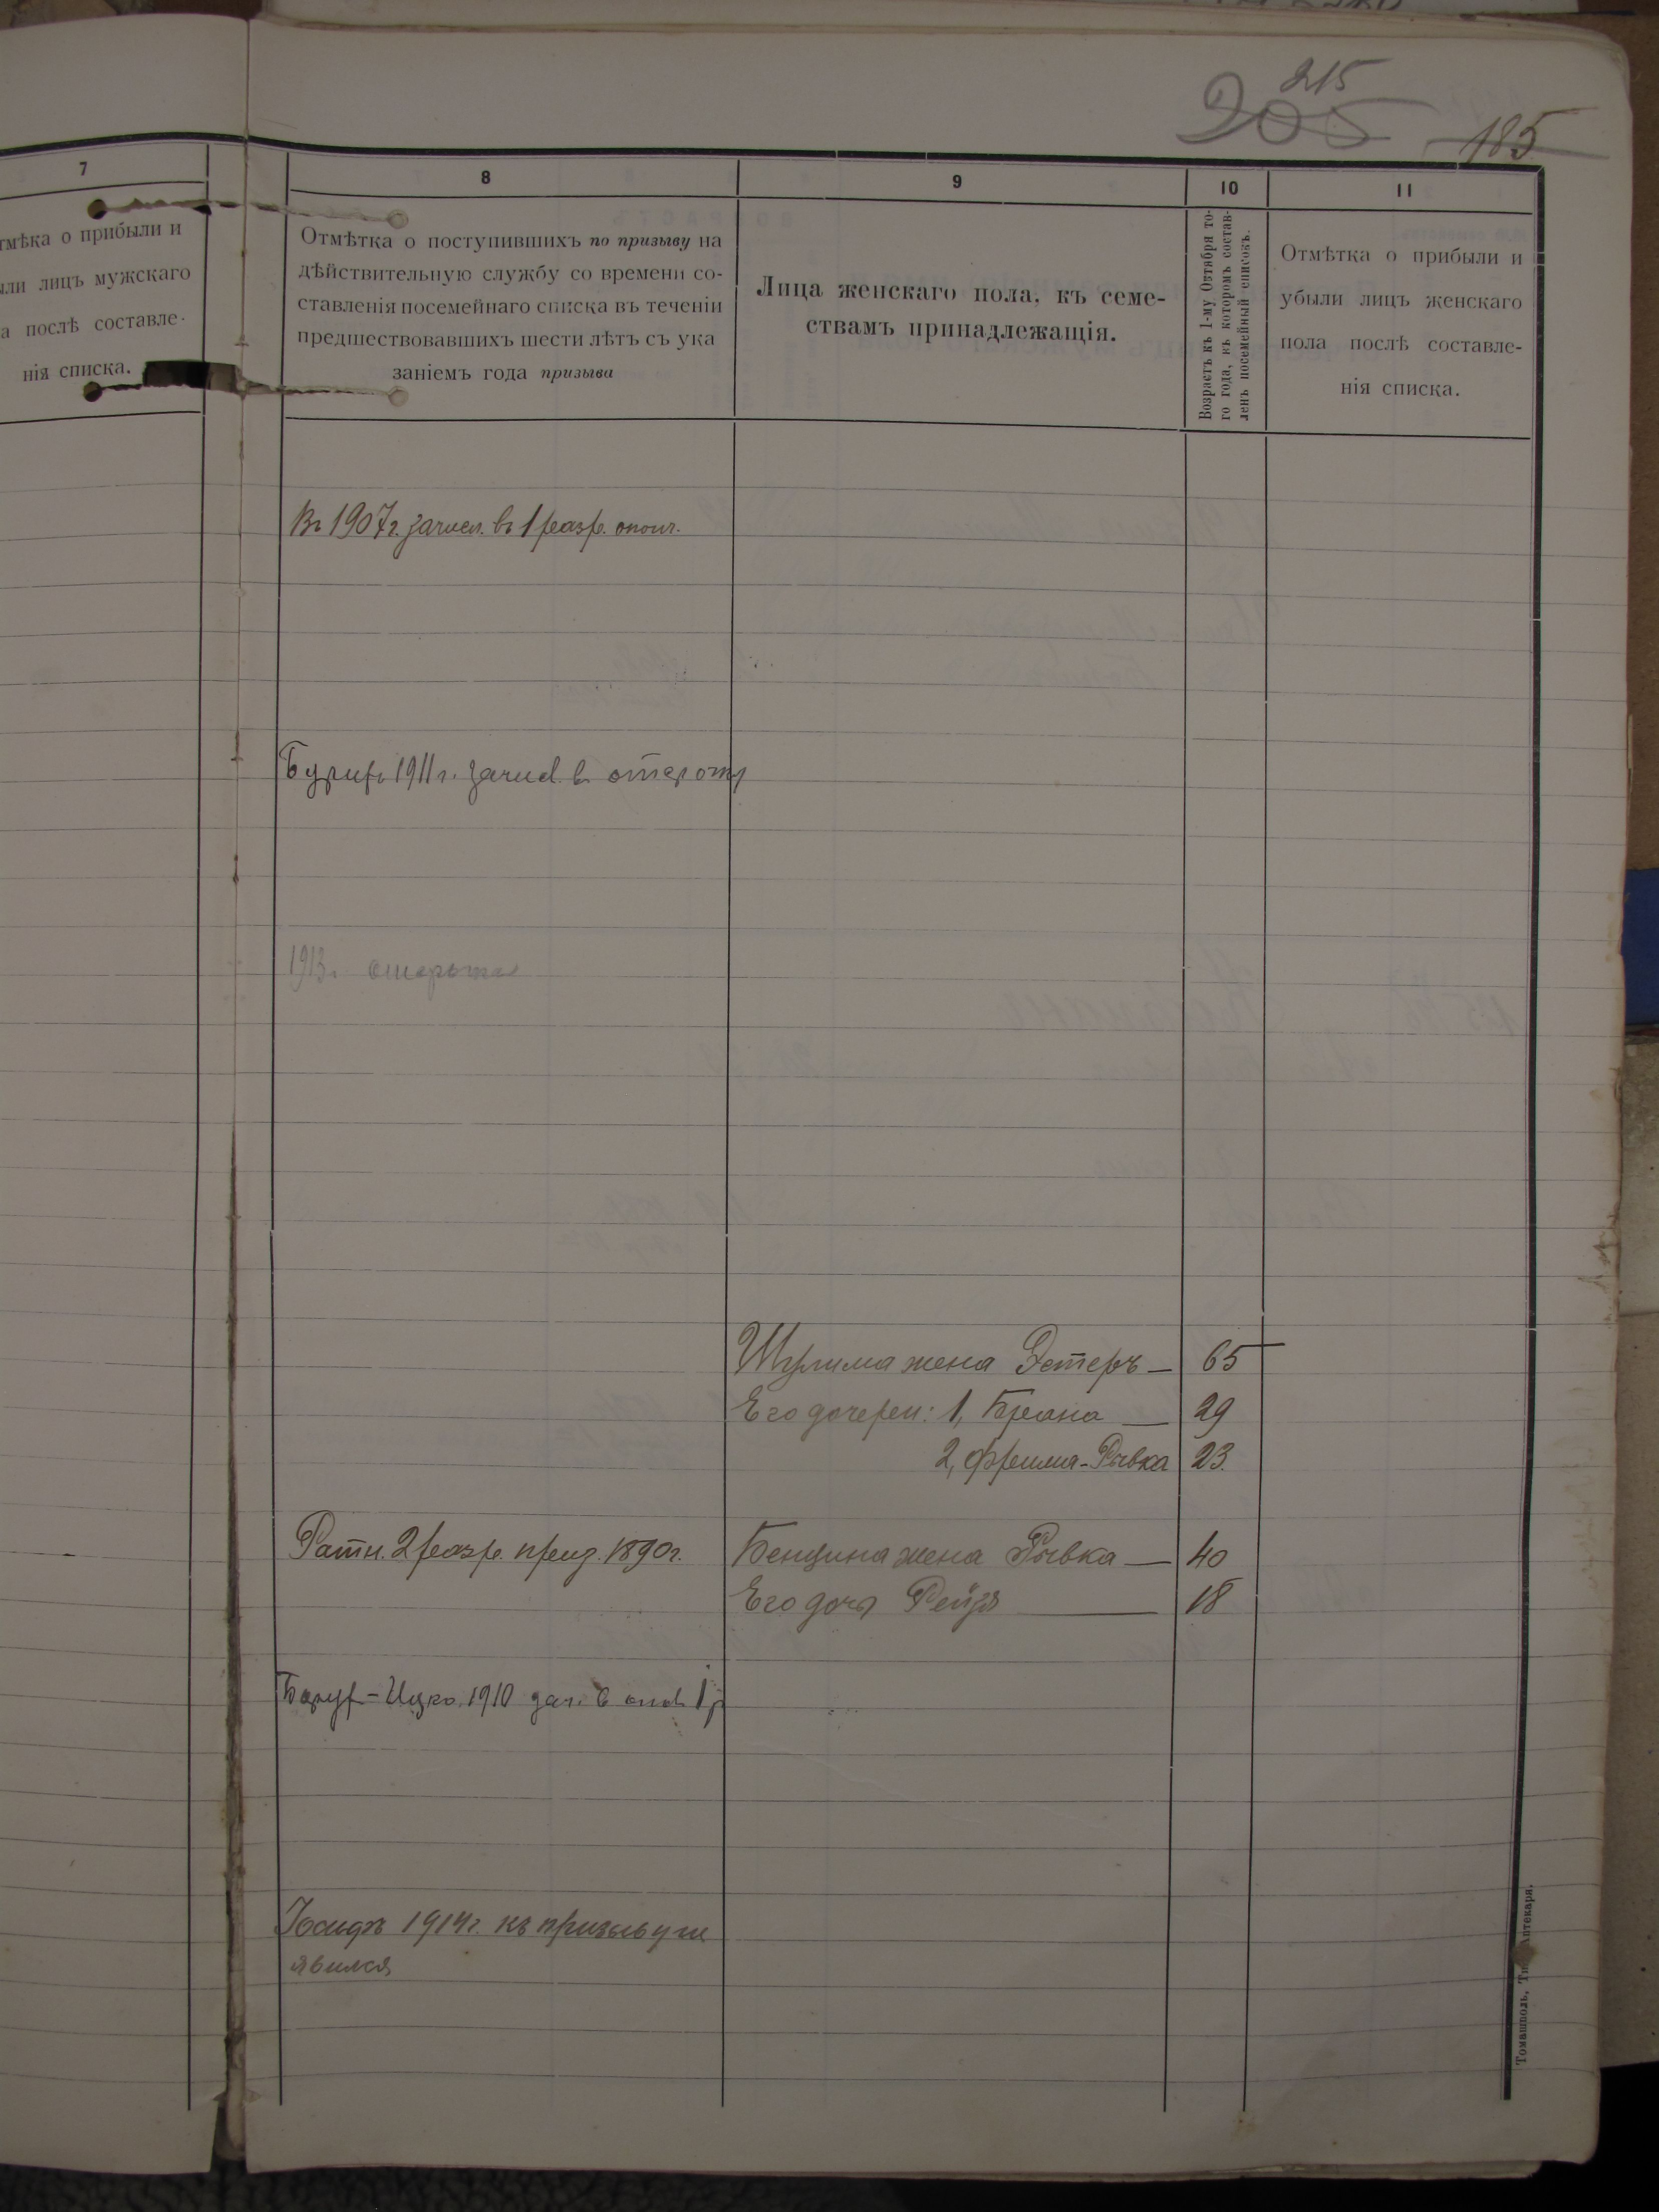 215
205
185
7
тмѣка о прибыли и
ыли лицъ мужскаго
а послѣ составле-
нія списка.
8
Отмѣтка о поступившихъ по призыву на
дѣйствительную службу со времени со-
ставленія посемейнаго списка въ теченіи
предшествовавшихъ шести лѣтъ съ ука
заніемъ года призыва
9
Лица женскаго пола, къ семе-
ствамъ принадлежащія.
10
Возрастъ къ 1-му Октября то-
го года, въ которомъ состав-
ленъ посемейный списокъ.
11
Отмѣтка о прибыли и
убыли лицъ женскаго
пола послѣ составле-
нія списка.
Въ 1907 г. зачисл. въ 1 разр. ополч.
1911 г. зачисл. в
1913 г.
Шулима жена Эстеръ — 65
Его дочери: 1, Бреана — 29
2, Фрейма-Рывка 23.
Ратн. 2 разр. приз. 1890 г.
Бенциона жена Рывка — 40
Его дочь Рейзя — 18
Борух-Ицко 1910 зач. в опол. 1 р
1914 г. къ призыву не
явился
Томашполь, Тип. Аптекаря.